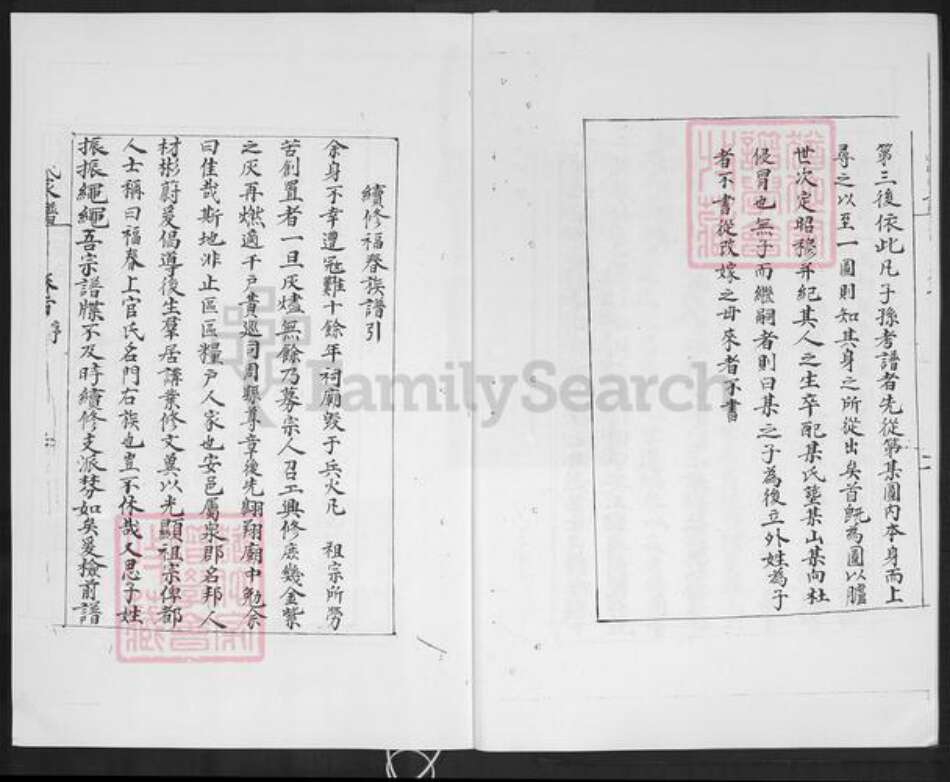 第三後依此凡子孫考譜者先從第某圖內本身而上
尋之以至一圖則知其身之所從出矣首旣為圖以臚
世次定昭穆并紀其人之生卒配某氏塟某山某向杜
侵冒也無子而繼嗣者則曰某之子為後立外姓為子
者不書從改嫁之母來者不書
續修福春族譜引
余身不幸遭寇難十餘年祠廟毀于兵火凡 祖宗所勞
苦創置者一旦灰燼無餘乃募宗人召工興修庶幾金紫
之灰再燃適千戶黃巡司周縣尊章後先翱翔廟中勉余
曰佳哉斯地非止區區糧戶人家也安邑屬泉郡名邦人
材彬蔚爰倡導後生羣居講業修文冀以光顯祖宗俾都
人士稱曰福春上官氏名門右族也豈不休哉人思子姓
振振繩繩吾宗譜牒不及時續修支派棼如矣爰檢前譜
FamilySearch